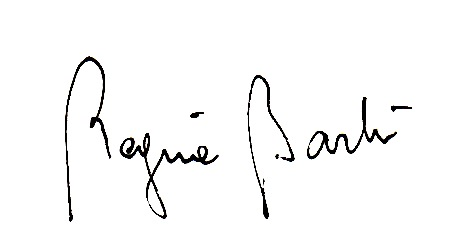 Regine Barth